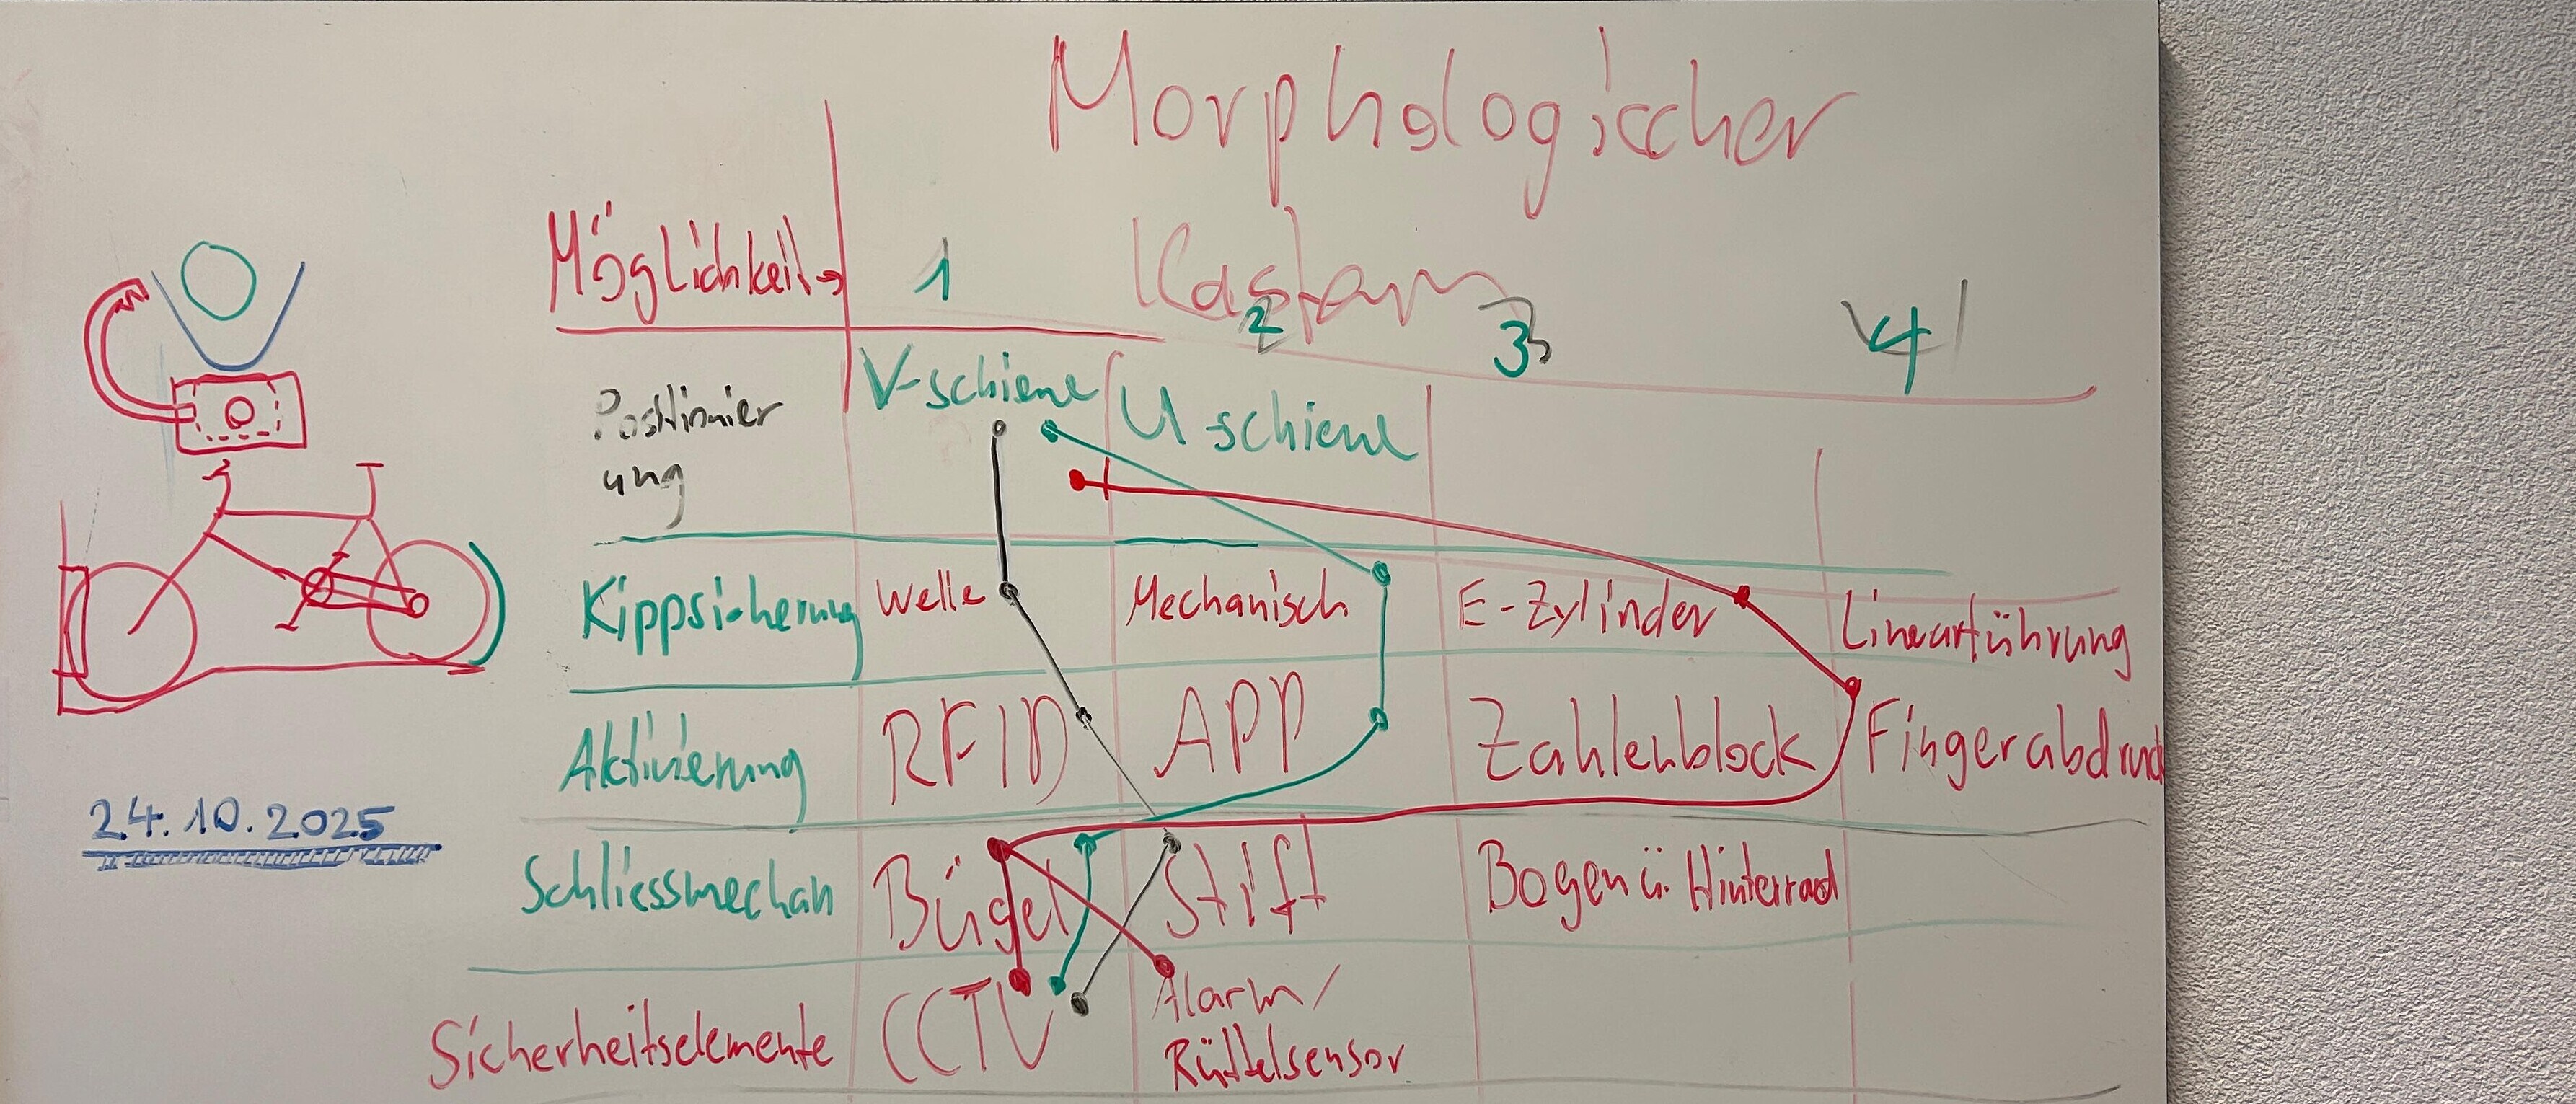 Morphologischer
Kasten
Möglichkeit→ 1 2 3 4
Positionier
ung
V-schiene U-schiene
Kippsicherung Welle Mechanisch E-Zylinder Linearführung
Aktivierung RFID APP Zahlenblock Fingerabdruck
Schliessmechan Bügel Stift Bogen ü. Hinterrad
Sicherheitselemente CCTV Alarm/
Rüttelsensor
24.10.2025